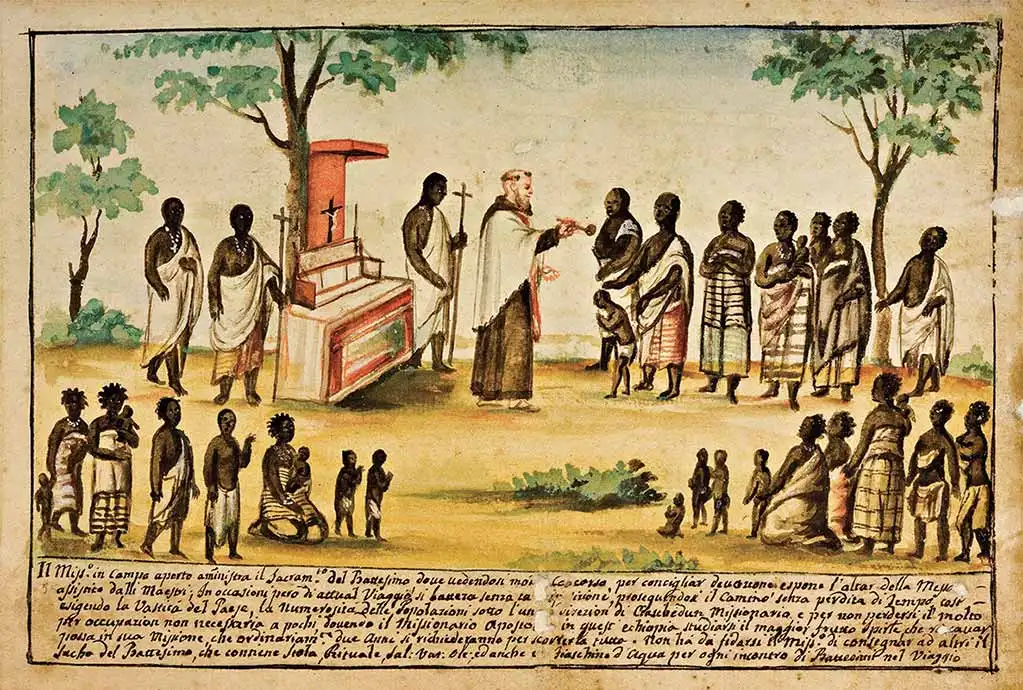 Il Miss.º in Campo aperto aministra il Sacram.to del Battesimo dove vedendosi mol Concorso, per conciglíar devozione espone l'altar della Messa
assistito dalli Maestri; In occasioni però di attual Viaggio si battezza senza ta proseguendo il Camino senza perdita di tempo, così
esigendo la Vastità del Paese, la Numerosità delle Popolazioni sotto l'un direzion di Missionario, e per non perdersi il molto
per occupazion non necessaria a pochi dovendo il Missionario Aposto. in quest' ethiopia studiarsi il maggior
possa in sua Missione, che ordinariam.te due Anni si richiederanno per scorrerla tutta. Non ha da fidarsi il Miss.º di consegnar ad altri il
sacho del Battesimo, che contiene Stola, Rituale, Sal: Vas: Ole: ed anche Fiaschino d'Aqua per ogni incontro di nel Viaggio